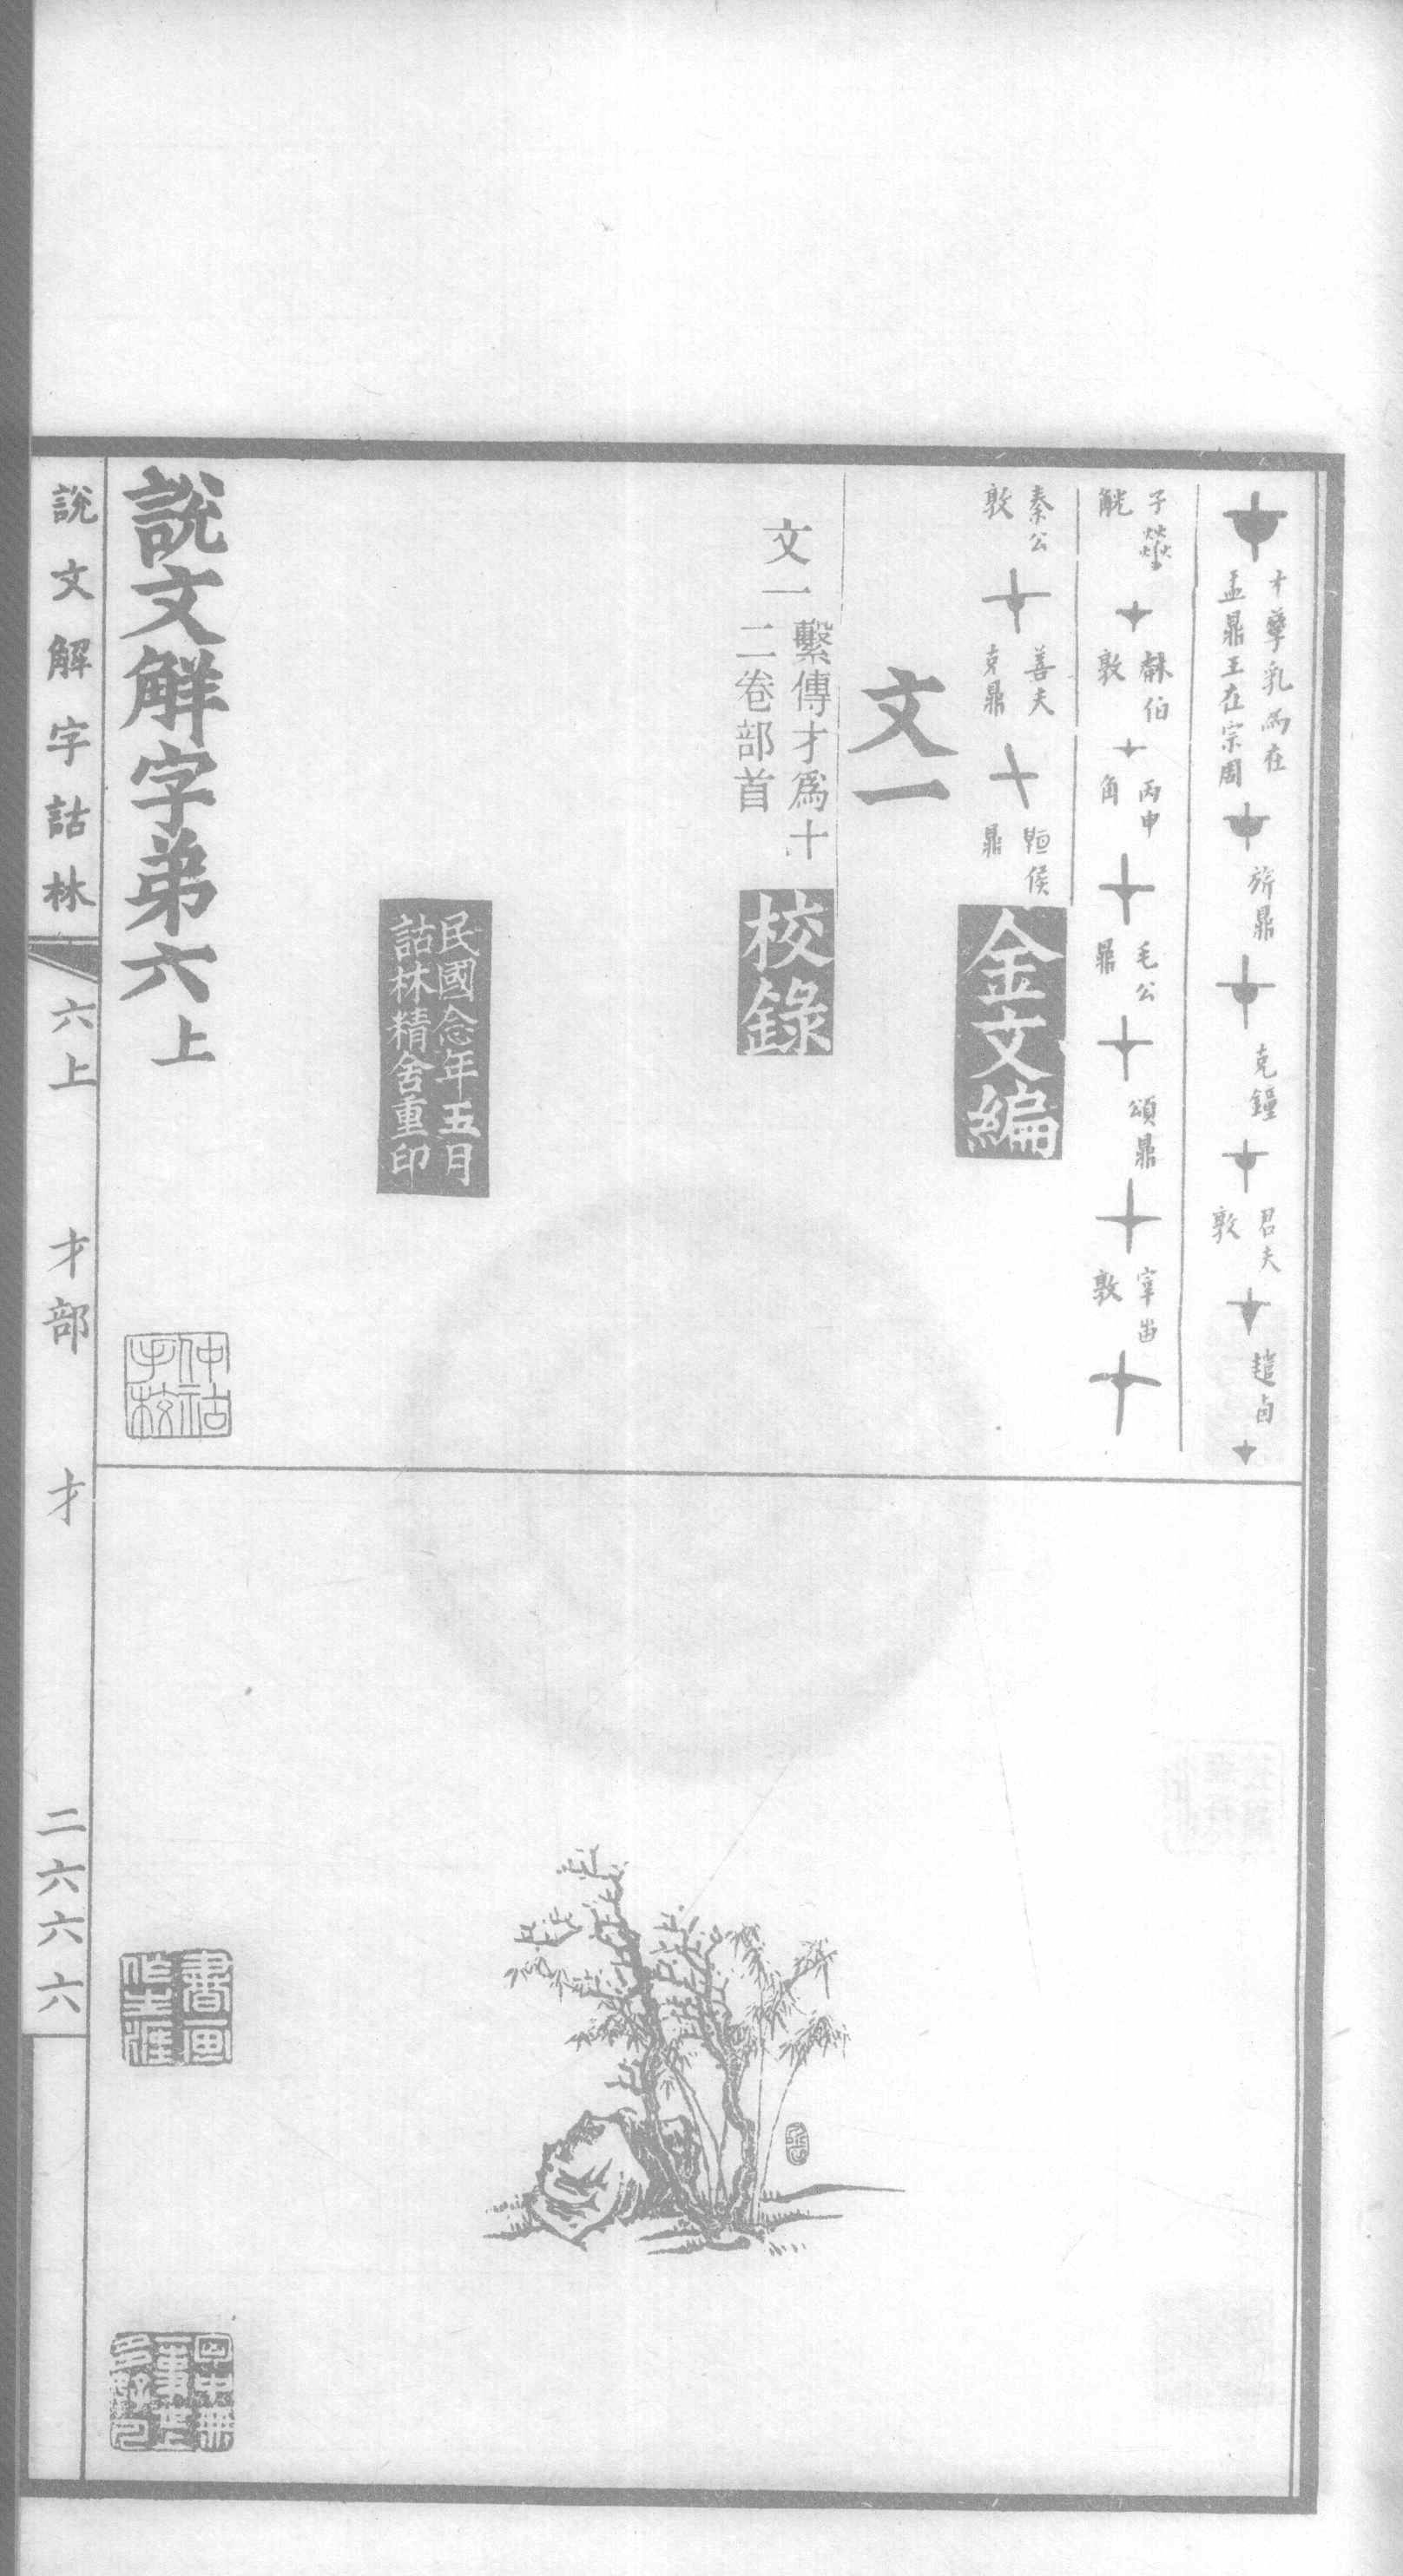 才孳乳爲在
盂鼎王在宗周
旂鼎
克鐘
君夫敦
趞卣
子燮觥
丙申角
毛公鼎
頌鼎
宰甾敦
秦公敦
善夫克鼎
䣄侯鼎
金文編
文一
文一
繫傳才爲十
二卷部首
校錄
民國念年五月
詁林精舍重印
說文解字弟六上
仲祜手校
書畫作生涯
說文解字詁林
六上
才部
才
二六六六